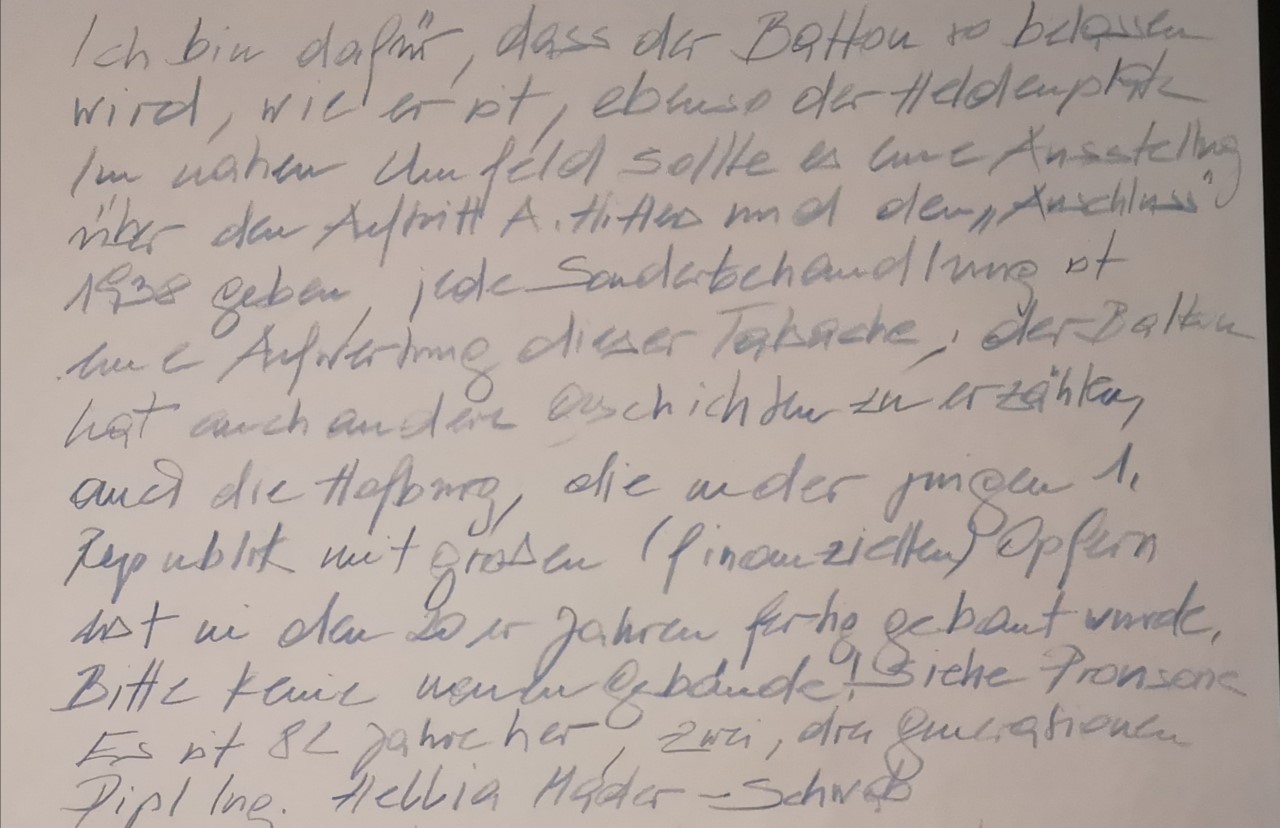 Ich bin dafür, dass der Balkon so belassen
wird, wie er ist, ebenso der Heldenplatz
Im nahen Umfeld sollte es eine Ausstellung
über den Auftritt A. Hitlers und den „Anschluss"
1938 geben, jede Sonderbehandlung ist
eine Aufwertung dieser Tatsache, der Balkon
hat auch andere Geschichten zu erzählen,
auch die Hofburg, die in der jungen 1.
Republik mit großen (finanziellen) Opfern
erst in den 20er Jahren fertig gebaut wurde.
Bitte keine neuen Gebäude! Siehe
Es ist 82 Jahre her, zwei, drei Generationen
Dipl Ing. Mader-Schwab